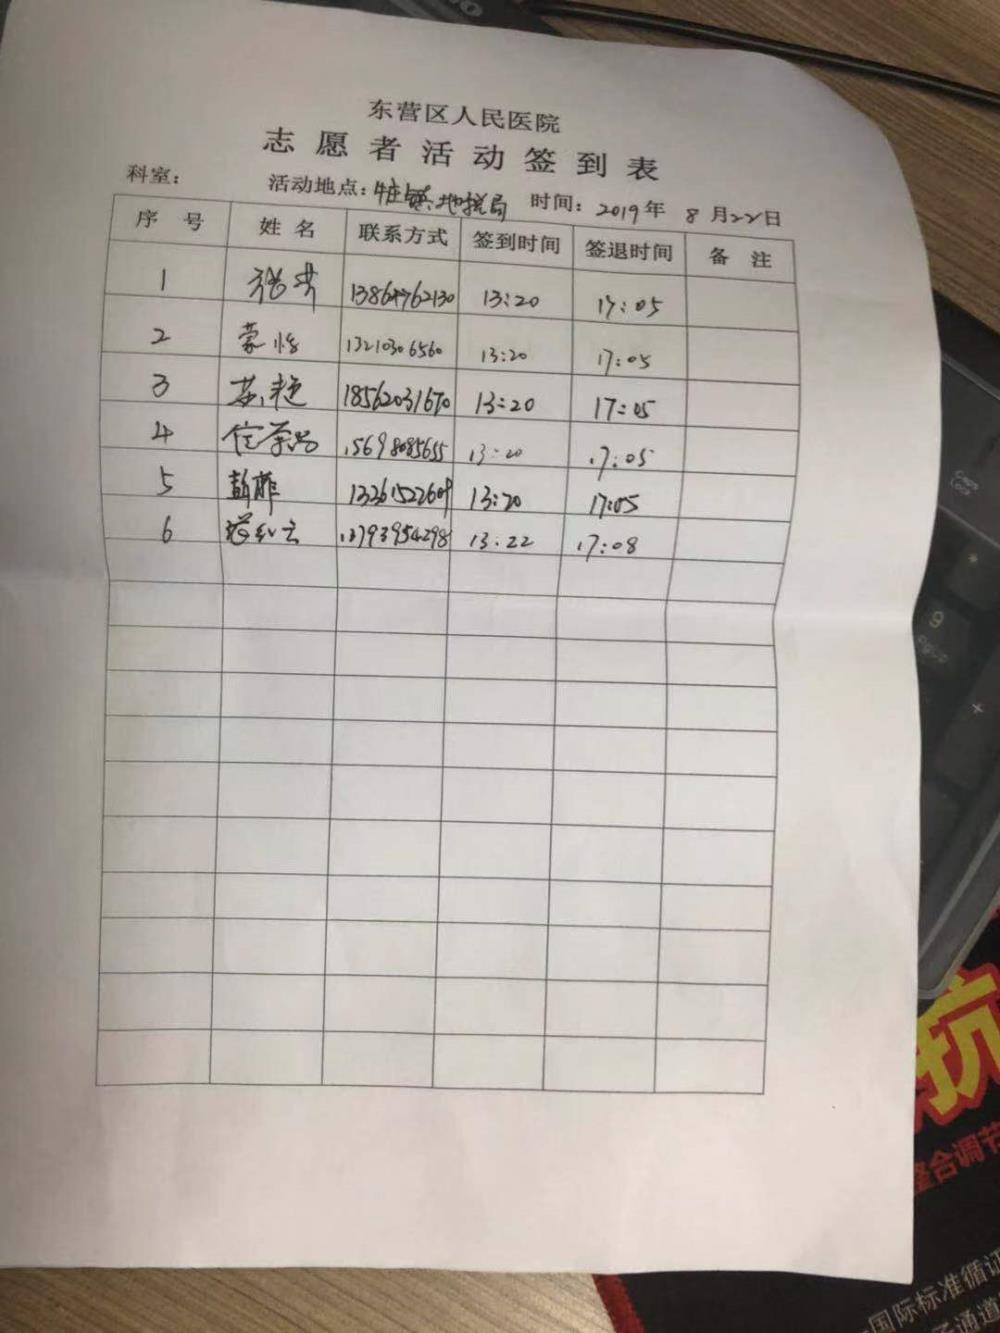 东营区人民医院
志愿者活动签到表
科室： 活动地点： 时间：2019年 8月22日
序号 姓名 联系方式 签到时间 签退时间 备注
1 13:20 17:05
2 蒙 13210306560 13:20 17:05
3 艳 18562031670 13:20 17:05
4 15698085655 13:20 17:05
5 彭菲 13:20 17:05
6 红云 13793954298 13:22 17:08
Caps Lock
9
PgUp
+
抗
整合调节
国际标准循证
通道